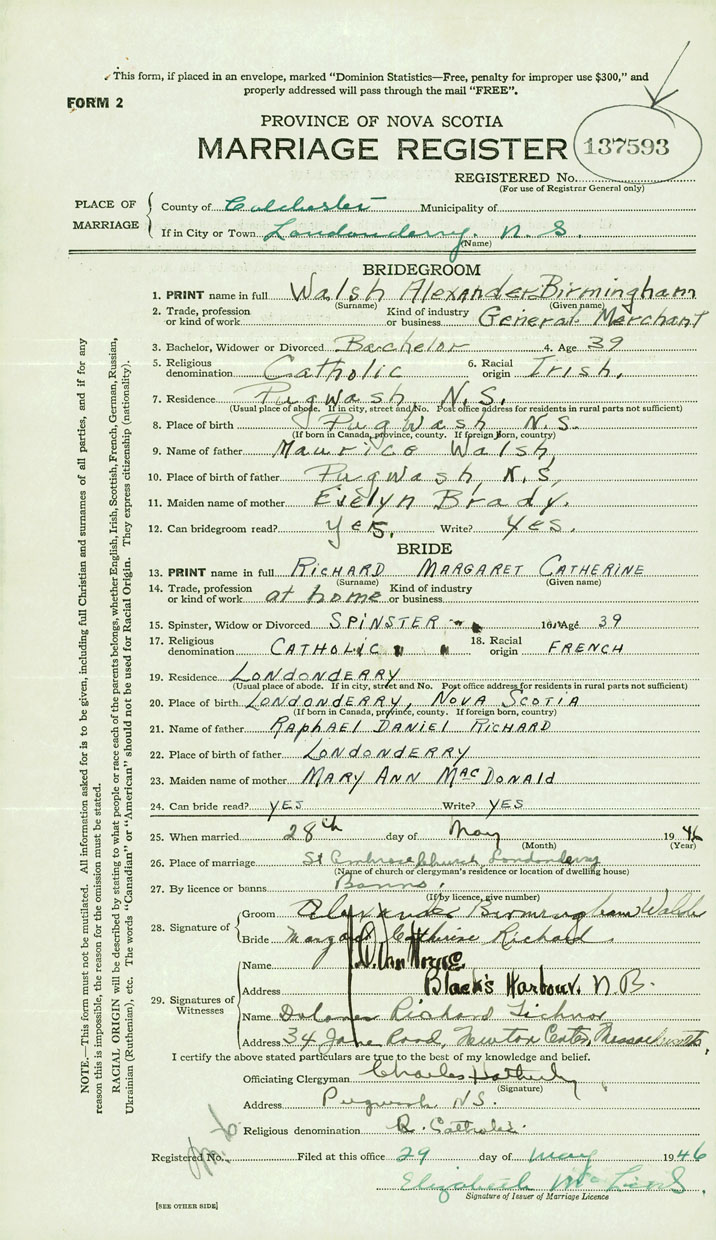 This form, if placed in an envelope, marked "Dominion Statistics—Free, penalty for improper use $300," and
properly addressed will pass through the mail "FREE".
FORM 2
PROVINCE OF NOVA SCOTIA
MARRIAGE REGISTER 137593
REGISTERED No.
(For use of Registrar General only)
PLACE OF MARRIAGE
County of Colchester Municipality of
If in City or Town Londonderry, N. S.
(Name)
BRIDEGROOM
1. PRINT name in full Walsh Alexander Birmingham
(Surname) (Given name)
2. Trade, profession or kind of work Kind of industry or business General Merchant
3. Bachelor, Widower or Divorced Bachelor 4. Age 39
5. Religious denomination Catholic 6. Racial origin Irish,
7. Residence Pugwash, N.S.
(Usual place of abode. If in city, street and No. Post office address for residents in rural parts not sufficient)
8. Place of birth Pugwash N.S.
(If born in Canada, province, county. If foreign born, country)
9. Name of father Maurice Walsh,
10. Place of birth of father Pugwash, N.S,
11. Maiden name of mother Evelyn Brady.
12. Can bridegroom read? yes, Write? Yes.
BRIDE
13. PRINT name in full RICHARD MARGARET CATHERINE
(Surname) (Given name)
14. Trade, profession or kind of work at home Kind of industry or business
15. Spinster, Widow or Divorced SPINSTER 16. Age 39
17. Religious denomination CATHOLIC 18. Racial origin FRENCH
19. Residence LONDONDERRY
(Usual place of abode. If in city, street and No. Post office address for residents in rural parts not sufficient)
20. Place of birth LONDONDERRY, NOVA SCOTIA
(If born in Canada, province, county. If foreign born, country)
21. Name of father RAPHAEL DANIEL RICHARD
22. Place of birth of father LONDONDERRY
23. Maiden name of mother MARY ANN MACDONALD
24. Can bride read? YES Write? YES
25. When married 28th day of May 1946
(Month) (Year)
26. Place of marriage St Ambrose Church, Londonderry
(Name of church or clergyman's residence or location of dwelling house)
27. By licence or banns Banns.
(If by licence, give number)
28. Signature of
Groom Alexander Birmingham Walsh
Bride Margaret Catherine Richard.
29. Signatures of Witnesses
Name
Address Black's Harbour. N.B.
Name Dolores Richard
Address 34 Road, Newton Center, Massachusetts,
I certify the above stated particulars are true to the best of my knowledge and belief.
Officiating Clergyman Charles
(Signature)
Address Pugwash N.S.
Religious denomination R. Catholic.
Registered No. Filed at this office 29 day of May 1946
Elizabeth
Signature of Issuer of Marriage Licence
[SEE OTHER SIDE]
NOTE.—This form must not be mutilated. All information asked for is to be given, including full Christian and surnames of all parties, and if for any
reason this is impossible, the reason for the omission must be stated.
RACIAL ORIGIN will be described by stating to what people or race each of the parents belongs, whether English, Irish, Scottish, French, German, Russian,
Ukrainian (Ruthenian), etc. The words "Canadian" or "American" should not be used for Racial Origin. They express citizenship (nationality).